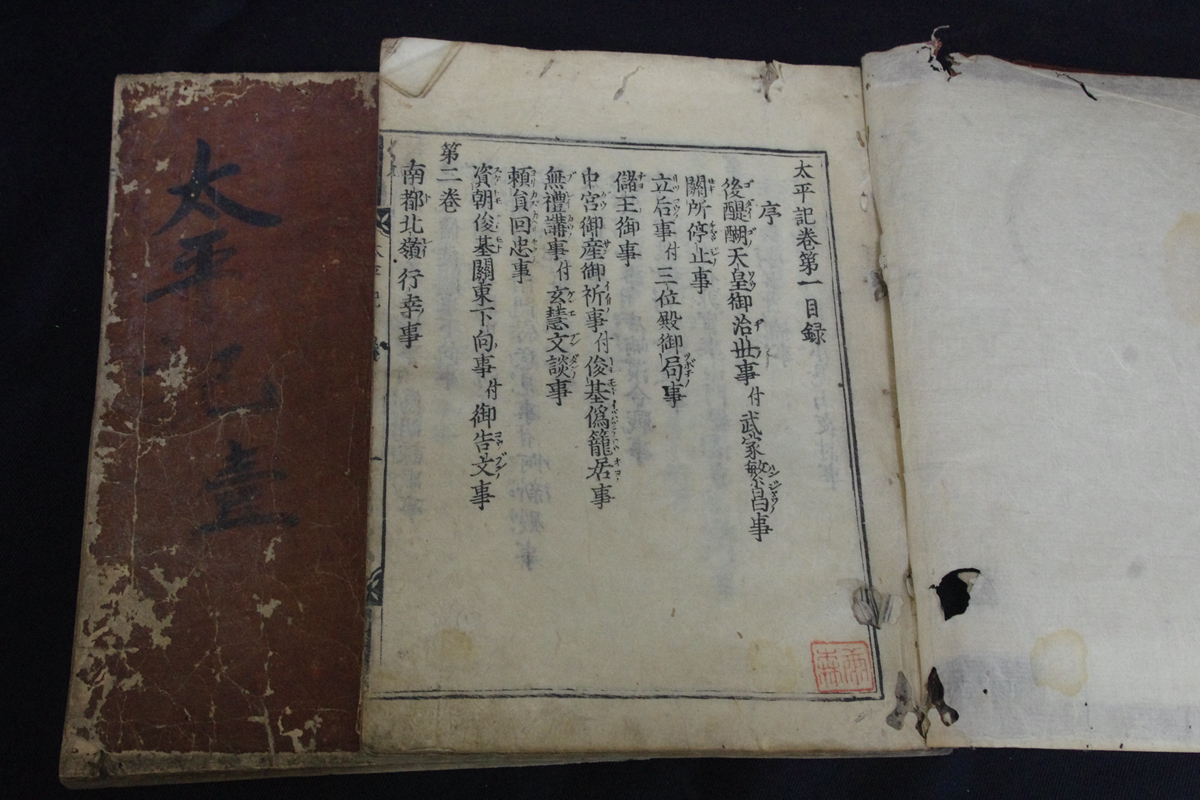 太平記卷第一目録
序
後醍醐天皇御治世事付武家繁昌事
關所停止事
立后事付三位殿御局事
儲王御事
中宮御產御祈事付俊基僞籠居事
無禮講事付玄慧文談事
賴員回忠事
資朝俊基關東下向事付御告文事
第二卷
南都北嶺行幸事
太平記壹